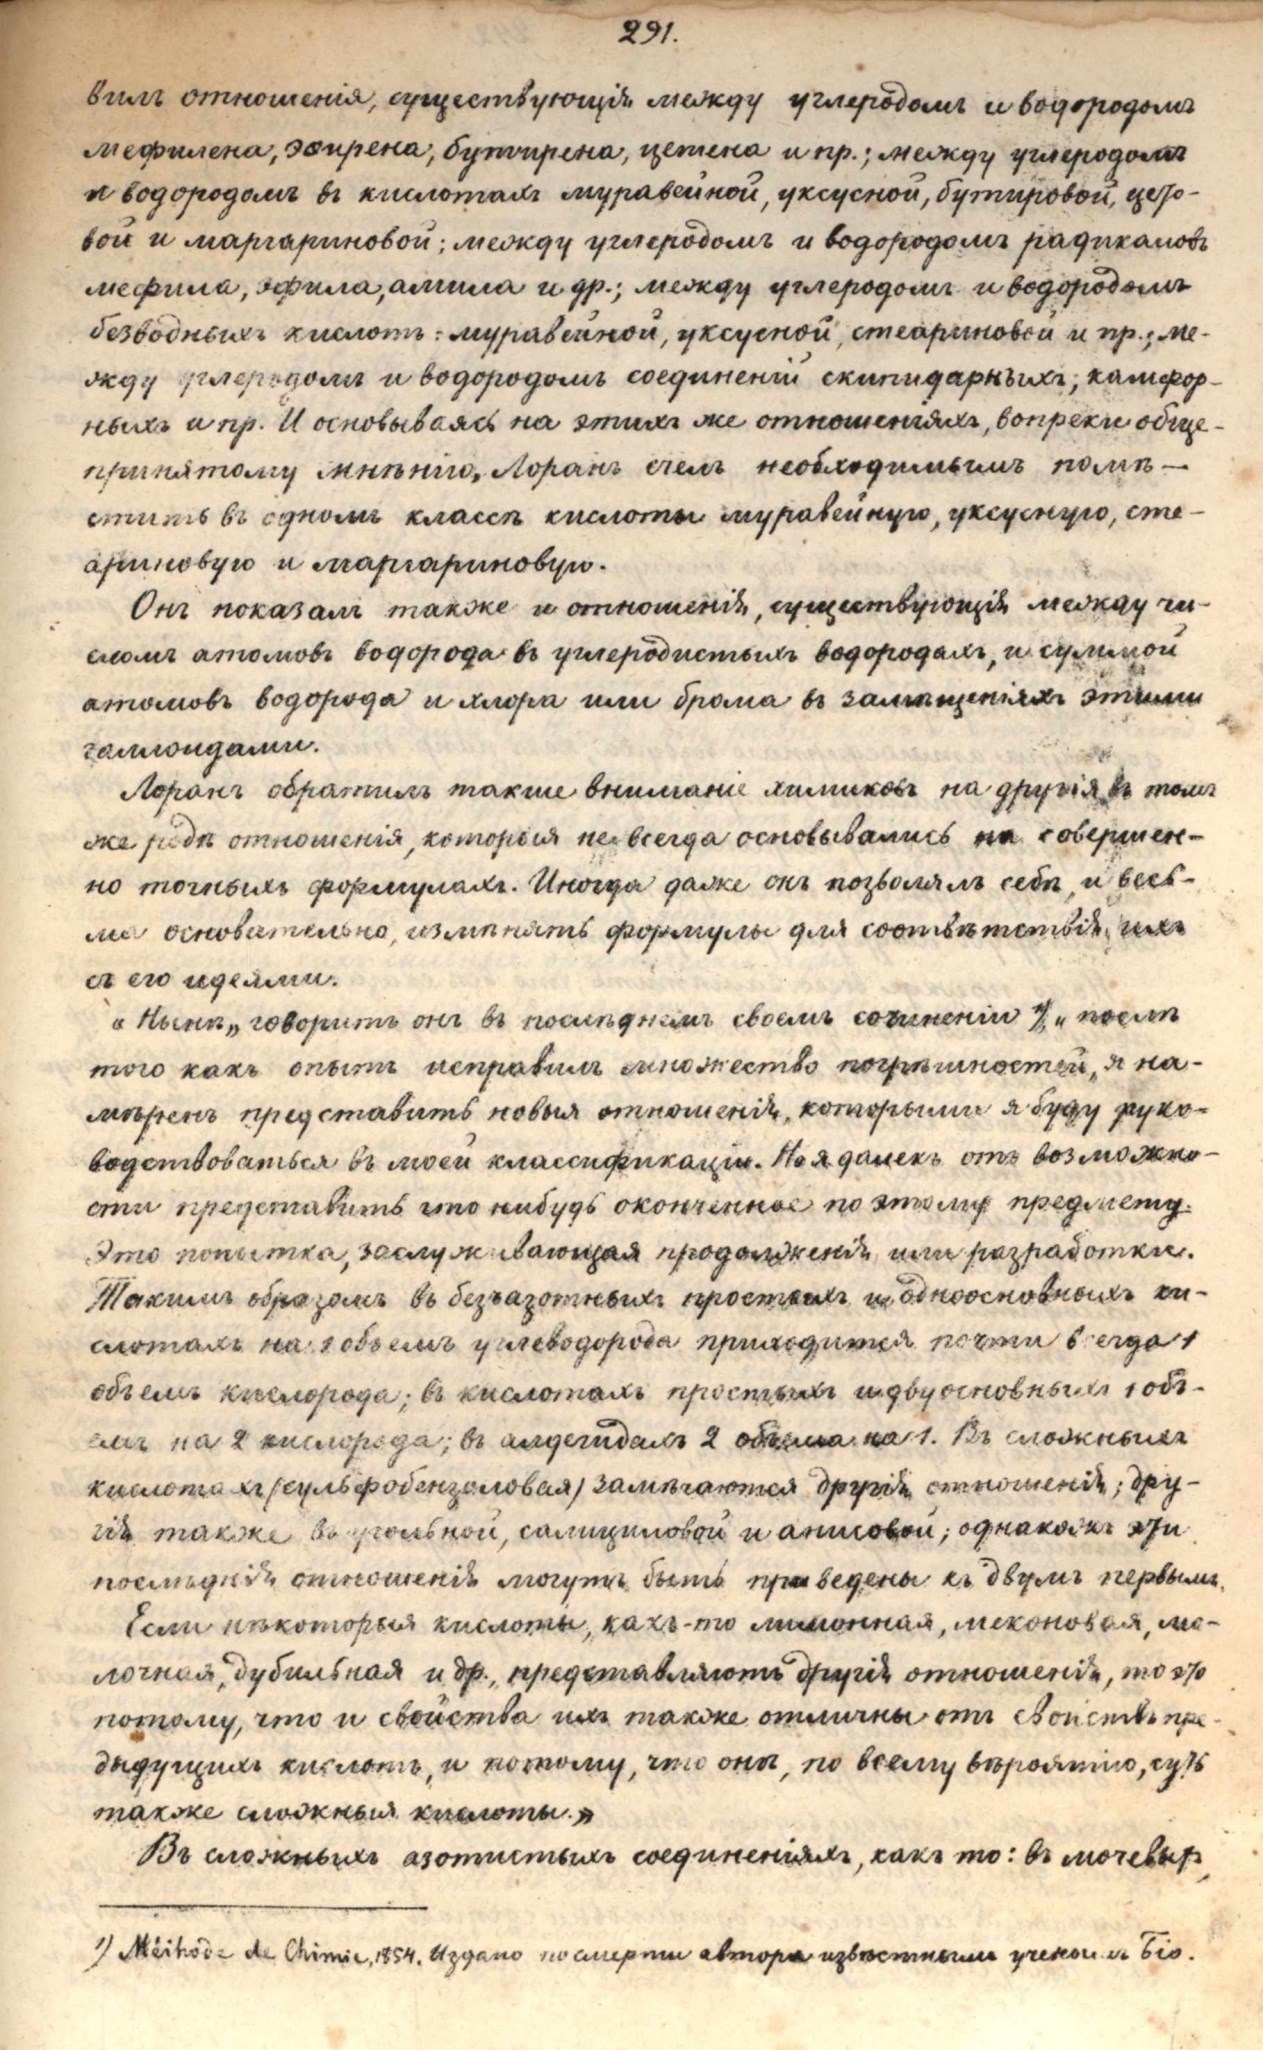 291.
вилъ отношенія, существующія между углеродомъ и водородомъ
мефилена, эѳирена, бутирена, цетена и пр.; между углеродомъ
и водородомъ въ кислотахъ муравейной, уксусной, бутировой, цето-
вой и маргариновой; между углеродомъ и водородомъ радикаловъ
мефила, эфила, амила и др.; между углеродомъ и водородомъ
безводныхъ кислотъ: муравейной, уксусной, стеариновой и пр.; ме-
жду углеродомъ и водородомъ соединеній скипидарныхъ, камфор-
ныхъ и пр. И основываясь на этихъ же отношеніяхъ, вопреки обще-
принятому мнѣнію, Лоранъ счелъ необходимымъ помѣ-
стить въ одномъ классѣ кислоты муравейную, уксусную, сте-
ариновую и маргариновую.
Онъ показалъ также и отношенія, существующія между чи-
сломъ атомовъ водорода въ углеродистыхъ водородахъ, и суммой
атомовъ водорода и хлора или брома въ замѣщеніяхъ этими
галлоидами.
Лоранъ обратилъ также вниманіе химиковъ на другія въ томъ
же родѣ отношенія, которыя не всегда основывались на совершен-
но точныхъ формулахъ. Иногда даже онъ позволялъ себѣ, и весь-
ма основательно, измѣнять формулы для соотвѣтствія ихъ
съ его идеями.
„Нынѣ„ говоритъ онъ въ послѣднемъ своемъ сочиненіи ¹), „послѣ
того какъ опытъ исправилъ множество погрѣшностей, я на-
мѣренъ представить новыя отношенія, которыми я буду руко-
водствоваться въ моей классификаціи. Но я далекъ отъ возможно-
сти представить что нибудь оконченное по этому предмету.
Это попытка, заслуживающая продолженія или разработки.
Такимъ образомъ въ безъазотныхъ простыхъ и одноосновныхъ ки-
слотахъ на 1 объемъ углеводорода приходится почти всегда 1
объемъ кислорода; въ кислотахъ простыхъ и двуосновныхъ 1 объ-
емъ на 2 кислорода; въ алдегидахъ 2 объема на 1. Въ сложныхъ
кислотахъ (сульфобензоловая) замѣчаются другія отношенія; дру-
гія также въ угольной, салициловой и анисовой; однакожъ эти
послѣднія отношенія могутъ быть приведены къ двумъ первымъ.
Если нѣкоторыя кислоты, какъ-то лимонная, меконовая, мо-
лочная, дубильная и др., представляютъ другія отношенія, то это
потому, что и свойства ихъ также отличны отъ свойствъ пре-
дыдущихъ кислотъ, и потому, что онѣ, по всему вѣроятію, суть
также сложныя кислоты.»
Въ сложныхъ азотистыхъ соединеніяхъ, какъ то: въ мочевыхъ,
¹) Méthode de Chimie, 1854. Издано по смерти автора извѣстнымъ ученымъ Біо.